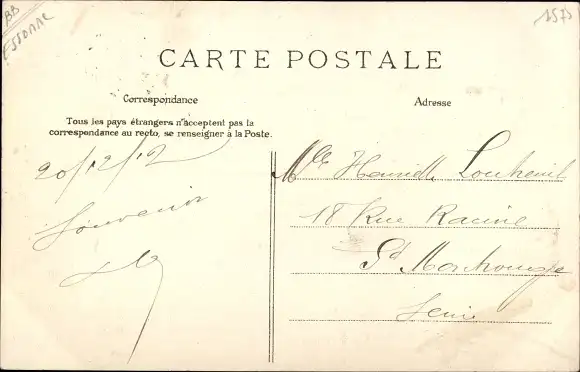 BB
ESSONNE
1575
CARTE POSTALE
Correspondance
Tous les pays étrangers n'acceptent pas la
correspondance au recto, se renseigner à la Poste.
20/12/12
Souvenir
Adresse
Mlle
18 Rue Racine
Gd Montrouge
Seine